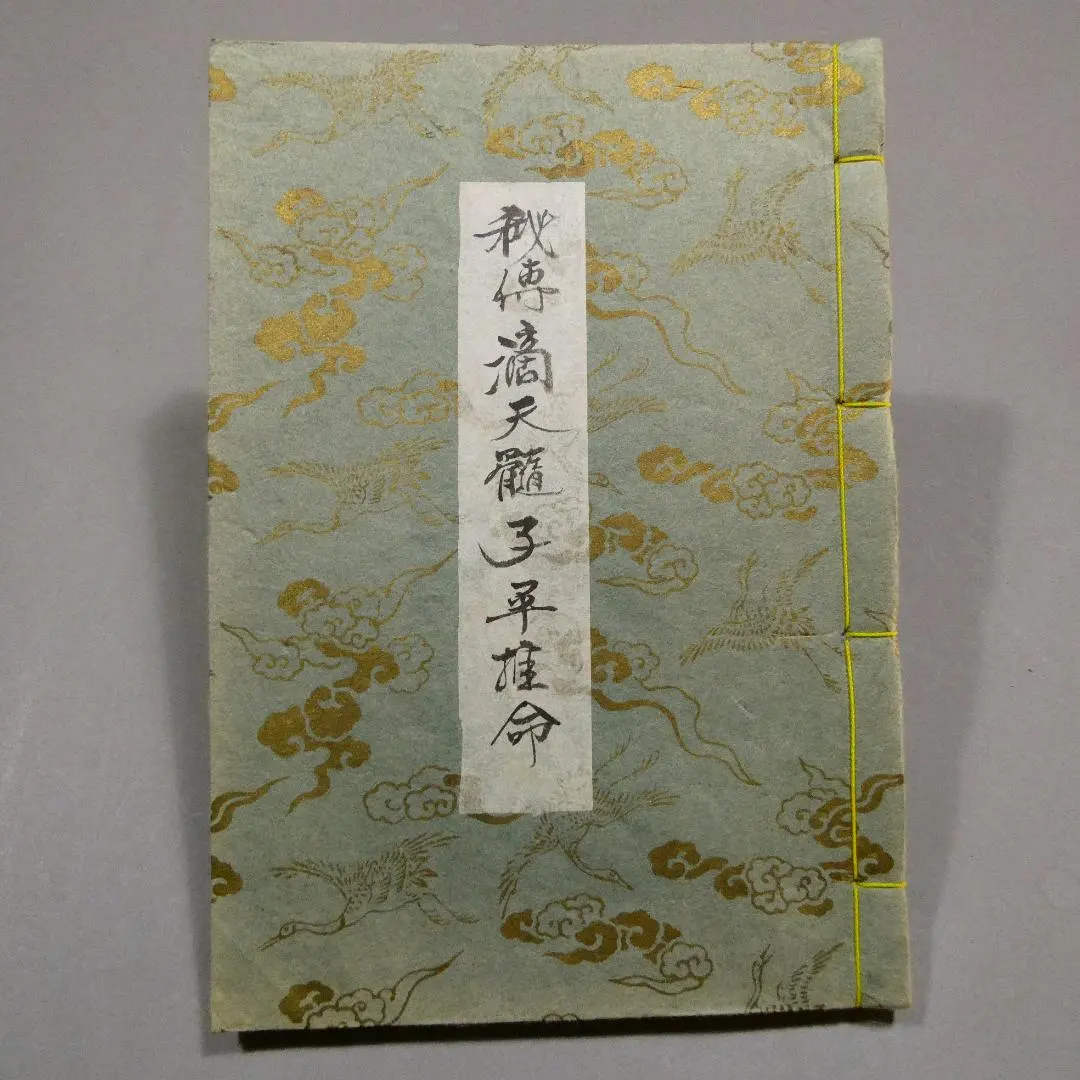 秘傳滴天髓子平推命